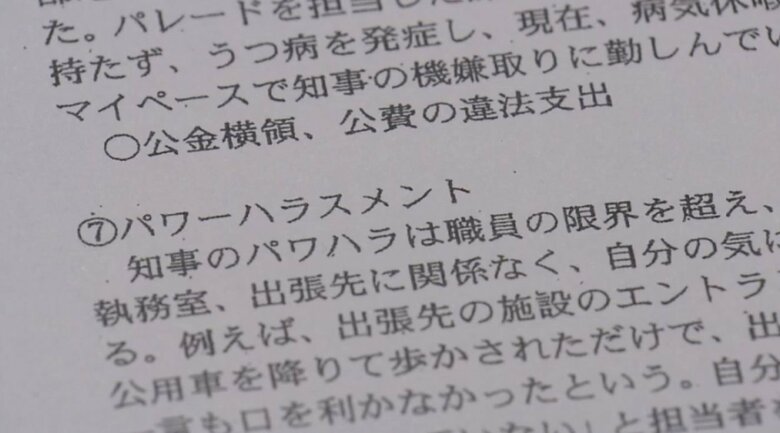 た。パレードを担当した
持たず、うつ病を発症し、現在、病気休暇
マイペースで知事の機嫌取りに勤しんでい
○公金横領、公費の違法支出
⑦パワーハラスメント
知事のパワハラは職員の限界を超え、
執務室、出張先に関係なく、自分の気に
る。例えば、出張先の施設のエントラ
公用車を降りて歩かされただけで、出
言も口を利かなかったという。自分
いない」と担当者